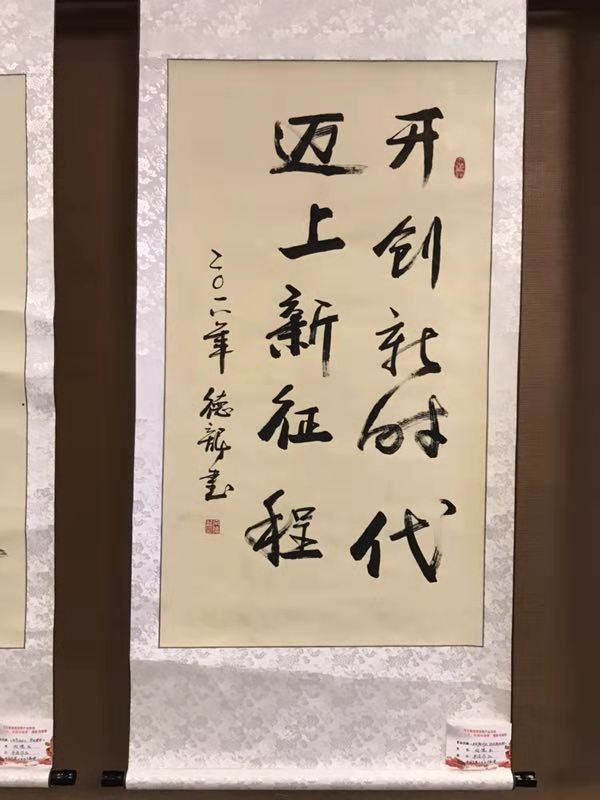 开创新时代
迈上新征程
二〇一八年 德龙书